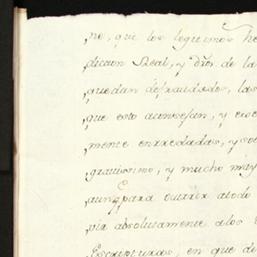 ne, que los legitimos he
diccion Real, y dros de la
quedan defraudados, las
que esto aconsejan, y exe
mente enrredadas, y so
gravissimo, y mucho may
aun para ocurrir a todo
via absolutamente a los
Escripturas, en que de